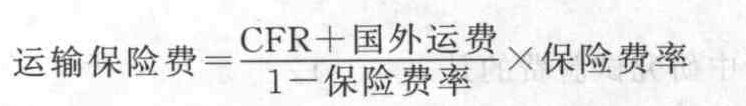 运输保险费=\frac{CFR+国外运费}{1-保险费率}×保险费率